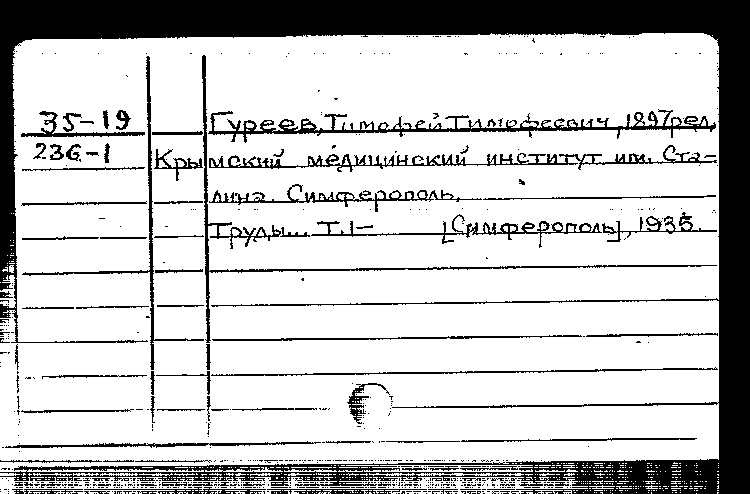 35-19 Гуреев, Тимофей Тимофеевич, 1897 ред.
236-1 Крымский медицинский институт им. Ста-
лина. Симферополь.
Труды... Т.1- [Симферополь], 1935.